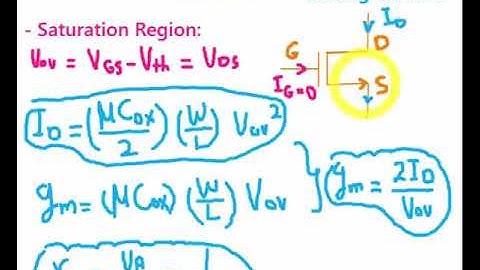 - Saturation Region:
Vov = VGS - Vth = VDS
ID
D
G
IG=0
S
ID = (μCox/2) (W/L) Vov²
gm = (μCox) (W/L) Vov
gm = 2ID/Vov
VA